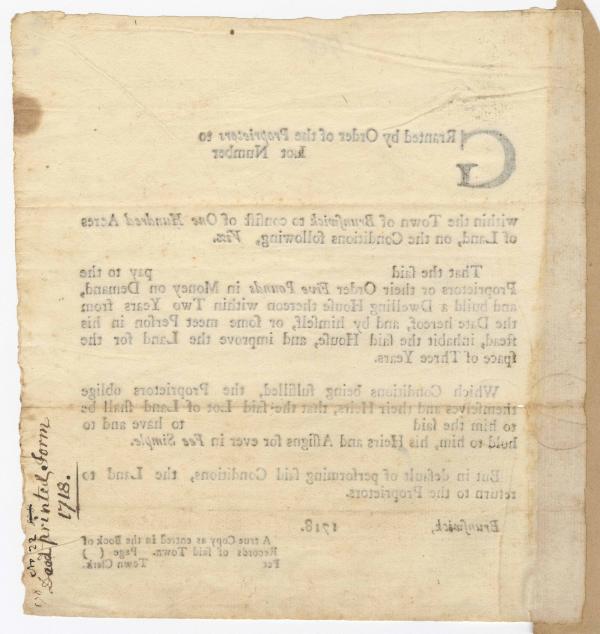 GRanted by Order of the Proprietors to
Lot Number
within the Town of Brunswick to consist of One Hundred Acres
of Land, on the Conditions following, Viz.
That the said pay to the
Proprietors or their Order Five Pounds in Money on Demand,
and build a Dwelling House thereon within Two Years from
the Date hereof, and by himself, or some meet Person in his
stead, inhabit the said House, and improve the Land for the
space of Three Years.
Which Conditions being fulfilled, the Proprietors oblige
themselves and their Heirs, that the said Lot of Land shall be
to him the said to have and to
hold to him, his Heirs and Assigns for ever in Fee Simple.
But in default of performing said Conditions, the Land to
return to the Proprietors.
Brunswick, 1718.
A true Copy as entred in the Book of
Records of said Town. Page ( )
Per Town Clerk.
Deed printed form
1718.